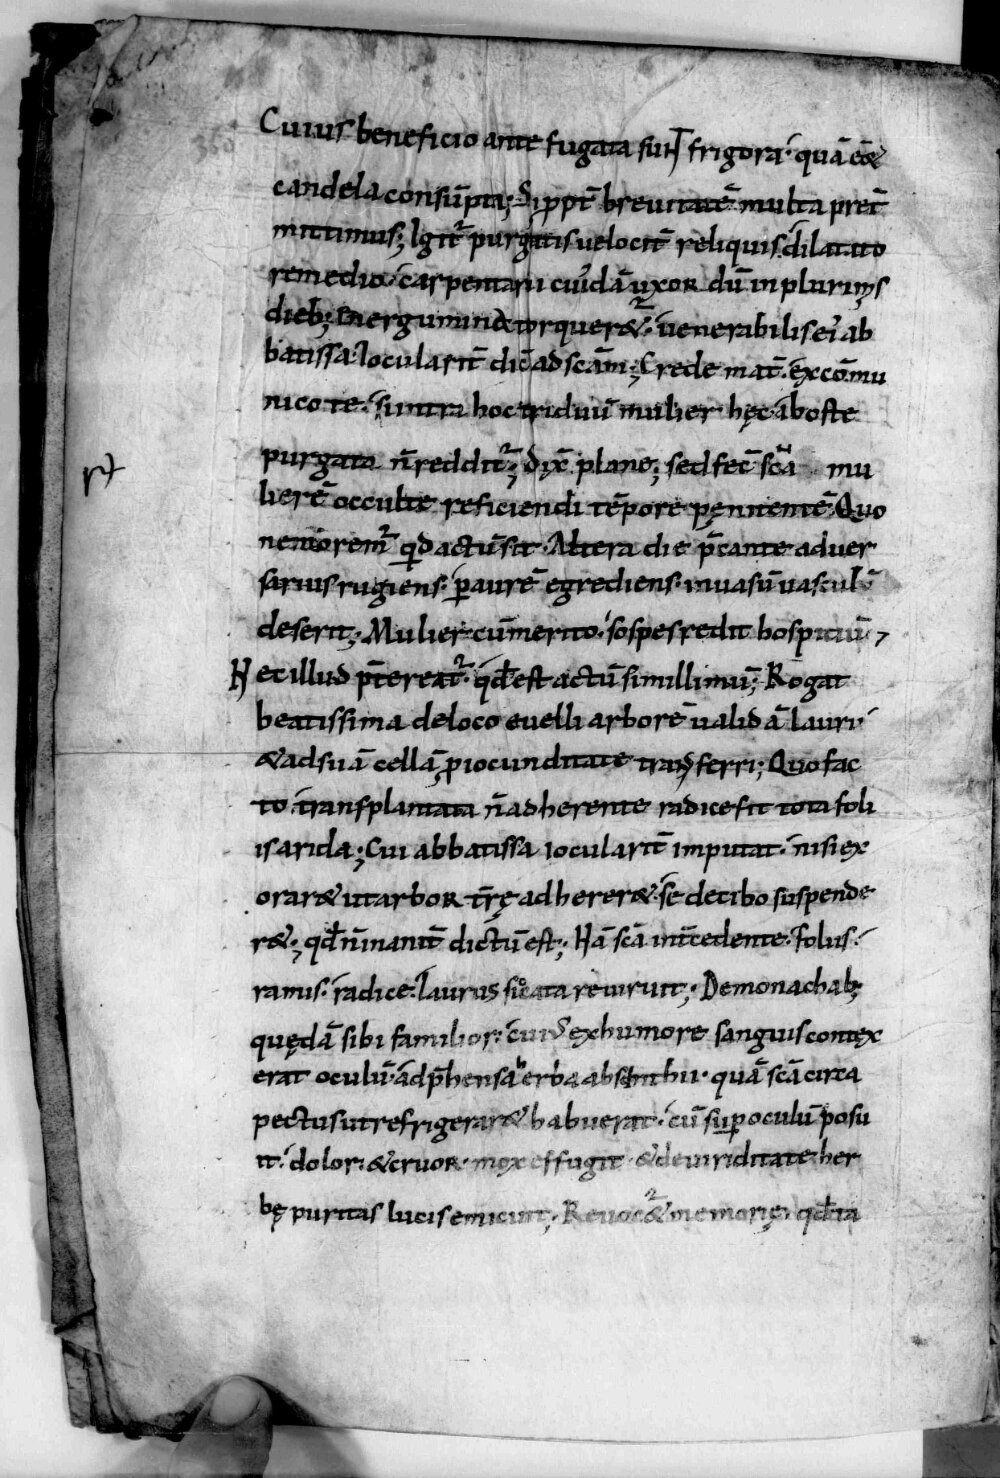 Cuius beneficio ante fugata sunt frigora· quā eēt
candela consūpta; Si ꝓpt̄ breuitatē multa pret̄
mittimus; Igit᷑ purgatis uelocit̄ reliquis. dilatato
remedio· carpentarii cuidā uxor dū in plurimis
dieb; energuminę torquer&᷑· uenerabilis ei ab
batissa ioculariť dic̄ ad scām; Crede mat̄· excōmu
nico te· si intra hoc triduū mulier hęc ab oste
purgata n̄ reddit᷑; Dix̄ plane; sed fec̄ scā mu
lierē occulte reficiendi tēpore pęnitentē. Quo
ne miorem᷑ qd actū sit· Altera die p̄cante aduer
sarius rugiens· ꝑ aurē egrediens· inuasū uasculū
deserit; Mulier cū merito· sospes redit hospitiū;
Nec illud p̄tereat᷑· qđ est actū simillimū; Rogat
beatissima de loco euelli arborē ualidā lauri
& ad suā cellā ꝓ iocunditate transferri; Quo fac
to· transplantata n̄ adherente radice fit tota foli
is arida; Cui abbatissa iocularit̄ imputat· nisi ex
orar& ut arbor t̄rę adherer&· se de cibo suspende
r&; qđ n̄ inanit̄ dictū est; Nā scā int̄cedente· folus·
ramis· radice· laurus siccata reuiruit; De monachab;
quędā sibi familior· cui dx̄ ex humore sanguis contex
erat oculū· adp̄hensa herba absinthii· quā scā circa
pectus ut refrigerar& habuerat· cū sup oculū posu
it· dolor· & cruor· mox effugit· & de uiriditate her
bę puritas lucis emicuit; Reuoc&᷑ memorię· qđ ita